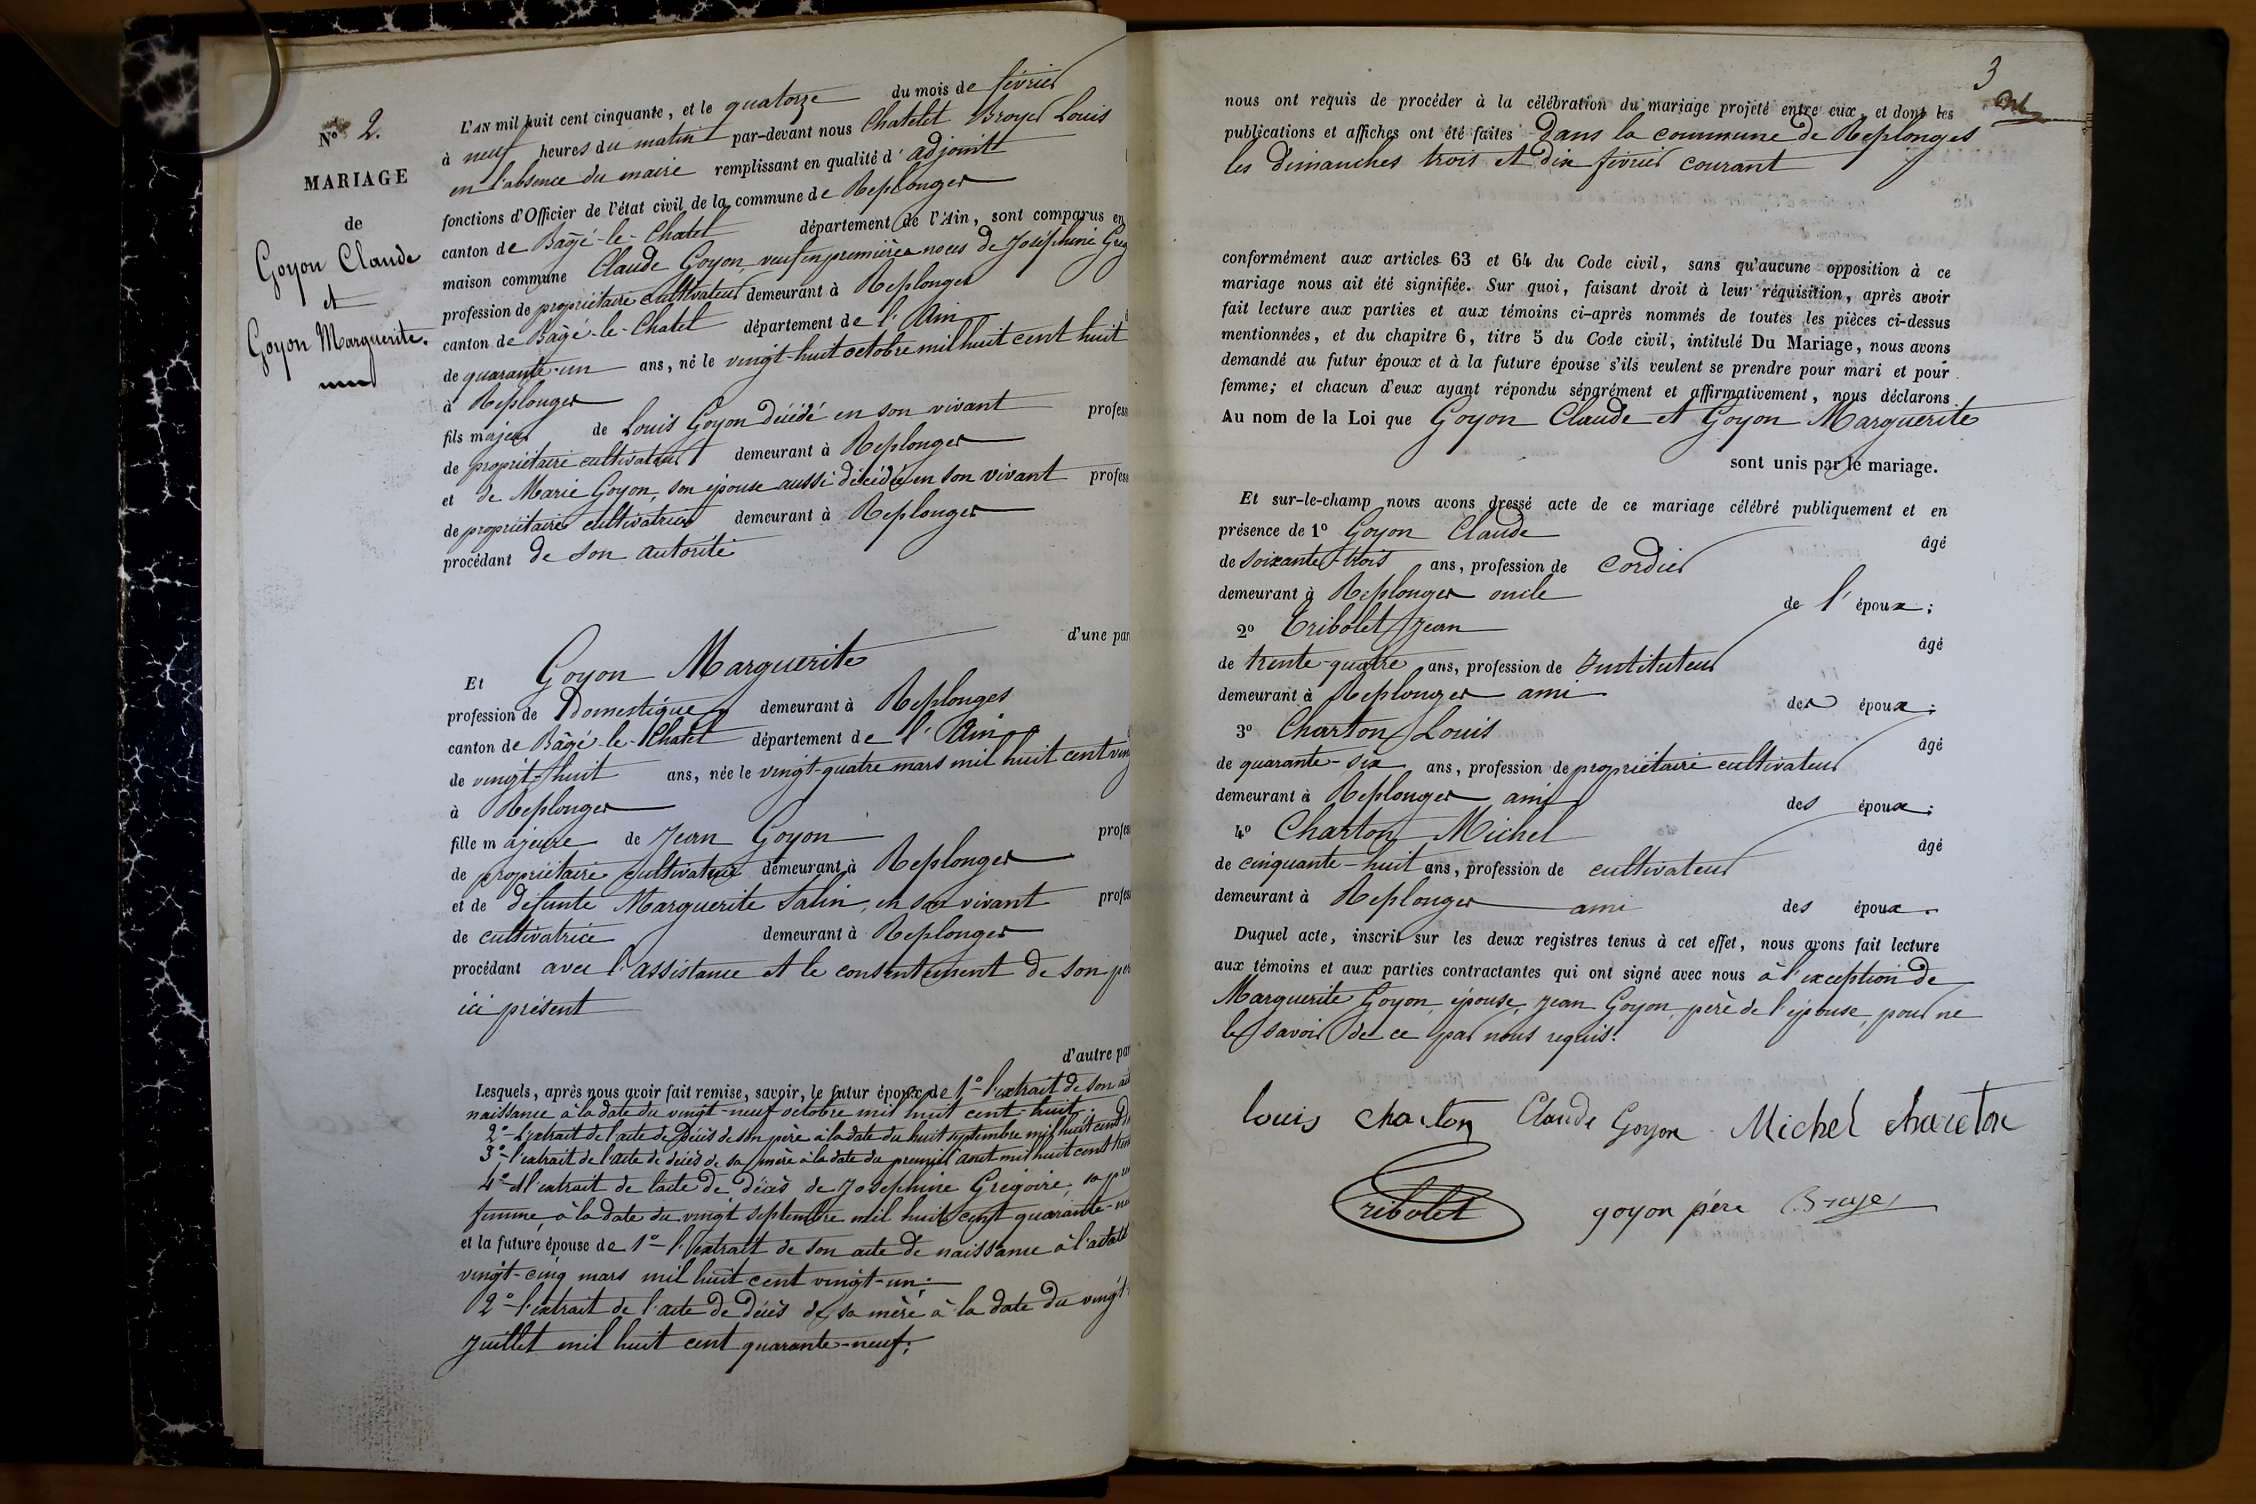 No 2.
MARIAGE
de
Goyon Claude
et
Goyon Marguerite.
L'AN mil huit cent cinquante, et le quatorze du mois de février
à neuf heures du matin par-devant nous Chatelet Broyer Louis
en l'absence du maire remplissant en qualité d'adjoint
fonctions d'Officier de l'état civil de la commune de Replonges
canton de Bâgé-le-Chatel département de l'Ain, sont comparus en
maison commune Claude Goyon, veuf en premières noces de Joséphine Greg
profession de propriétaire cultivateur demeurant à Replonges
canton de Bâgé-le-Chatel département de l'Ain
de quarante-un ans, né le vingt-huit octobre mil huit cent huit
à Replonges
fils majeur de Louis Goyon décédé en son vivant profess
de propriétaire cultivateur demeurant à Replonges
et de Marie Goyon, son épouse aussi décédée en son vivant profess
de propriétaire cultivatrice demeurant à Replonges
procédant de son autorité
d'une par
Et Goyon Marguerite
profession de Domestique demeurant à Replonges
canton de Bâgé-le-Chatel département de l'Ain
de vingt-huit ans, née le vingt-quatre mars mil huit cent ving
à Replonges
fille majeure de Jean Goyon profess
de propriétaire cultivateur demeurant à Replonges
et de défunte Marguerite Salin, en son vivant profess
de cultivatrice demeurant à Replonges
procédant avec l'assistance et le consentement de son per
ici présent
d'autre par
Lesquels, après nous avoir fait remise, savoir, le futur époux de 1o l'extrait de son act
naissance à la date du vingt-neuf octobre mil huit cent-huit;
2o l'extrait de l'acte de décès de son père à la date du huit septembre mil huit cent
3o l'extrait de l'acte de décès de sa mère à la date du premier aout mil huit cent tren
4o et l'extrait de l'acte de décès de Josephine Grégoire, sa pre
femme, à la date du vingt septembre mil huit cent quarante-ne
et la future épouse de 1o l'extrait de son acte de naissance à la date
vingt-cinq mars mil huit cent vingt-un;
2o l'extrait de l'acte de décès de sa mère à la date du vingt
Juillet mil huit cent quarante-neuf;
3
nous ont requis de procéder à la célébration du mariage projeté entre eux, et dont les
publications et affiches ont été faites dans la commune de Replonges
les dimanches trois et dix février courant
conformément aux articles 63 et 64 du Code civil, sans qu'aucune opposition à ce
mariage nous ait été signifiée. Sur quoi, faisant droit à leur réquisition, après avoir
fait lecture aux parties et aux témoins ci-après nommés de toutes les pièces ci-dessus
mentionnées, et du chapitre 6, titre 5 du Code civil, intitulé Du Mariage, nous avons
demandé au futur époux et à la future épouse s'ils veulent se prendre pour mari et pour
femme; et chacun d'eux ayant répondu séparément et affirmativement, nous déclarons
Au nom de la Loi que Goyon Claude et Goyon Marguerite
sont unis par le mariage.
Et sur-le-champ nous avons dressé acte de ce mariage célébré publiquement et en
présence de 1o Goyon Claude âgé
de soixante-trois ans, profession de cordier
demeurant à Replonges oncle de l'époux;
2o Tribolet Jean âgé
de trente-quatre ans, profession de Instituteur
demeurant à Replonges ami des époux;
3o Charton Louis âgé
de quarante-six ans, profession de propriétaire cultivateur
demeurant à Replonges ami des époux;
4o Charton Michel âgé
de cinquante-huit ans, profession de cultivateur
demeurant à Replonges ami des époux.
Duquel acte, inscrit sur les deux registres tenus à cet effet, nous avons fait lecture
aux témoins et aux parties contractantes qui ont signé avec nous à l'exception de
Marguerite Goyon, épouse, Jean Goyon, père de l'épouse, pour ne
le savoir de ce par nous requis.
louis charton Claude Goyon Michel chareton
Tribolet goyon père Broyer